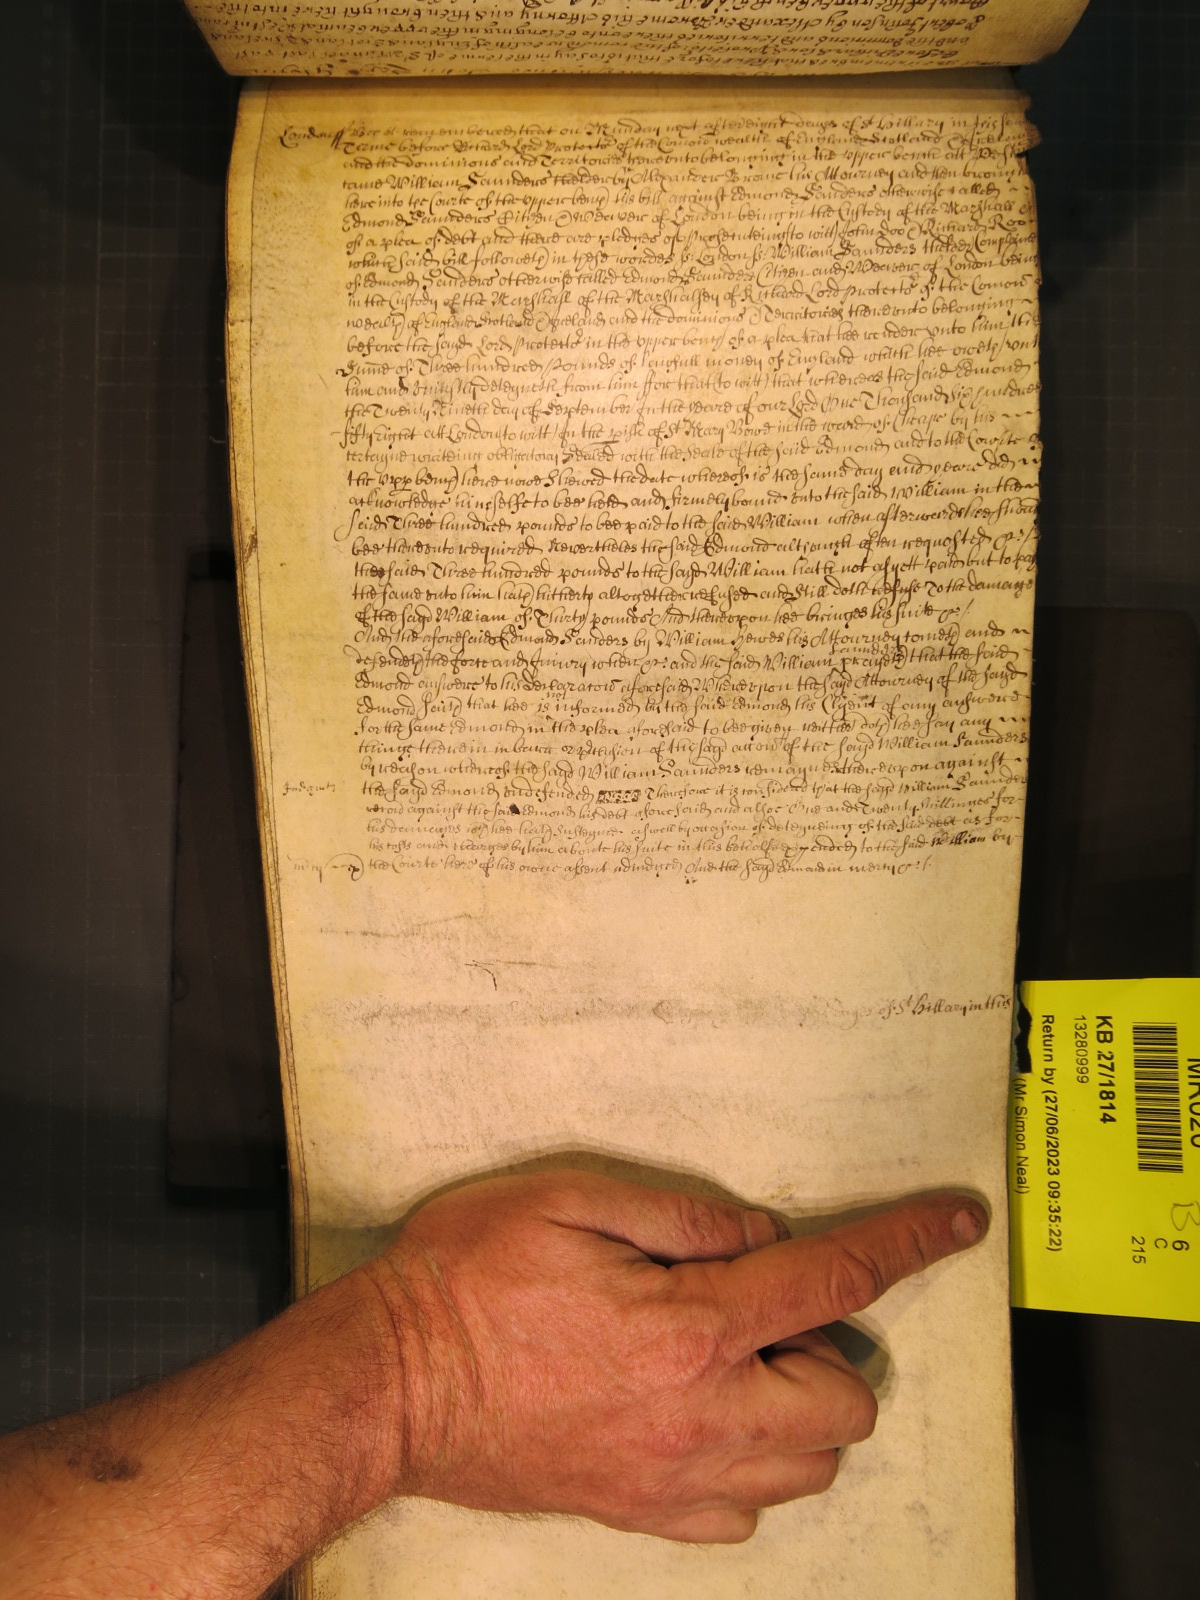 London ss Bee it remembered that on Munday next after eight dayes of St Hillary in this same
Terme before Richard Lord Protector of the Comon wealth of England Scotland & Ireland
and the dominions and Territories thereunto belonging in the upper bench att Westm
came William Saunders the elder by Alexander Brome his Attourney and then brought
here into the Courte of the upper bench his bill against Edmond Saunders otherwise called
Edmond Saunders Citizen & Weaver of London being in the Custody of the Marshall &c
of a plea of debt and there are pledges of prosecuteing to witt John Doo & Richard Roo
which said bill followeth in these wordes ss London ss William Saunders the elder Complaines
of Edmond Saunders otherwise called Edmond Saunders Citizen and Weaver of London being
in the Custody of the Marshall of the Marshalsey of Richard Lord Protector of the Comon
wealth of England Scotland & Ireland and the dominions & Territories thereunto belonging
before the sayd Lord Protector in the upper bench of a plea that hee render unto him the
Sume of Three hundred pounds of lawfull money of England which hee oweth unto
him and uniustly deteyneth from him ffor that (to witt) that whereas the said Edmond
the Twenty Nineth day of September in the yeare of our Lord One Thousand Six hundred
fifty eight att London to witt in the pish of St Mary Bowe in the ward of Cheape by his
certayne writeing obligatory Sealed with the seale of the said Edmond and to the Courte
the upp bench here nowe Shewed the date whereof is the same day and yeare did
acknowledge himselfe to bee held and firmely bound unto the said William in the
said Three hundred pounds to bee paid to the said William when afterwards hee should
bee thereunto required Nevertheles the said Edmond although often requested &c
the said Three hundred pounds to the sayd William hath not as yett paid but to pay
the same unto him hath hitherto altogether refused and still doth refuse To the damage
of the sayd William of Thirty pounds And thereupon hee bringes his suite &c
And the aforesaid Edmond Saunders by William Hewes his Attourney cometh and
defendeth the force and iniury when &c and the said William Saunders prayeth that the said
Edmond answere to his declaracon aforesaid Whereupon the sayd Attourney of the sayd
Edmond saith that hee is not informed by the said Edmond his Clyent of any answere
for the same Edmond in the plea aforesaid to bee given neither doth hee say any
thinge therein in barre or p'clusion of the sayd accon of the sayd William Saunders
by reason whereof the sayd William Saunders remaynes thereupon against
the sayd Edmond undefended Therefore it is considered that the sayd William Saunders
recov against the said Edmond his debt aforesaid and alsoe One and Twenty shillinges for
his damages wch hee hath susteyned aswell by occasion of deteyneing of the said debt as for
his costs and charges by him aboute his suite in this behalfe expended to the said William by
the Courte here of his owne assent adiudged And the sayd Edmond in mercy &c
Judgmt
mcy
dayes of St Hillary in this
KB 27/1814
13280999
Return by (27/06/2023 09:35:22)
(Mr Simon Neal)
B 6
C
215